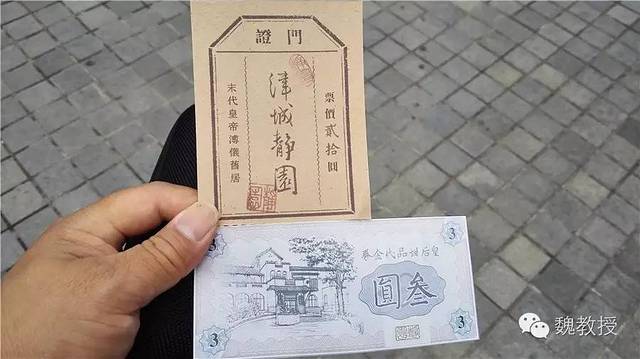 門證
票價貳拾圓
津城静園
末代皇帝溥儀舊居
3
3
皇后甜品代金券
叁圓
3
3
魏教授